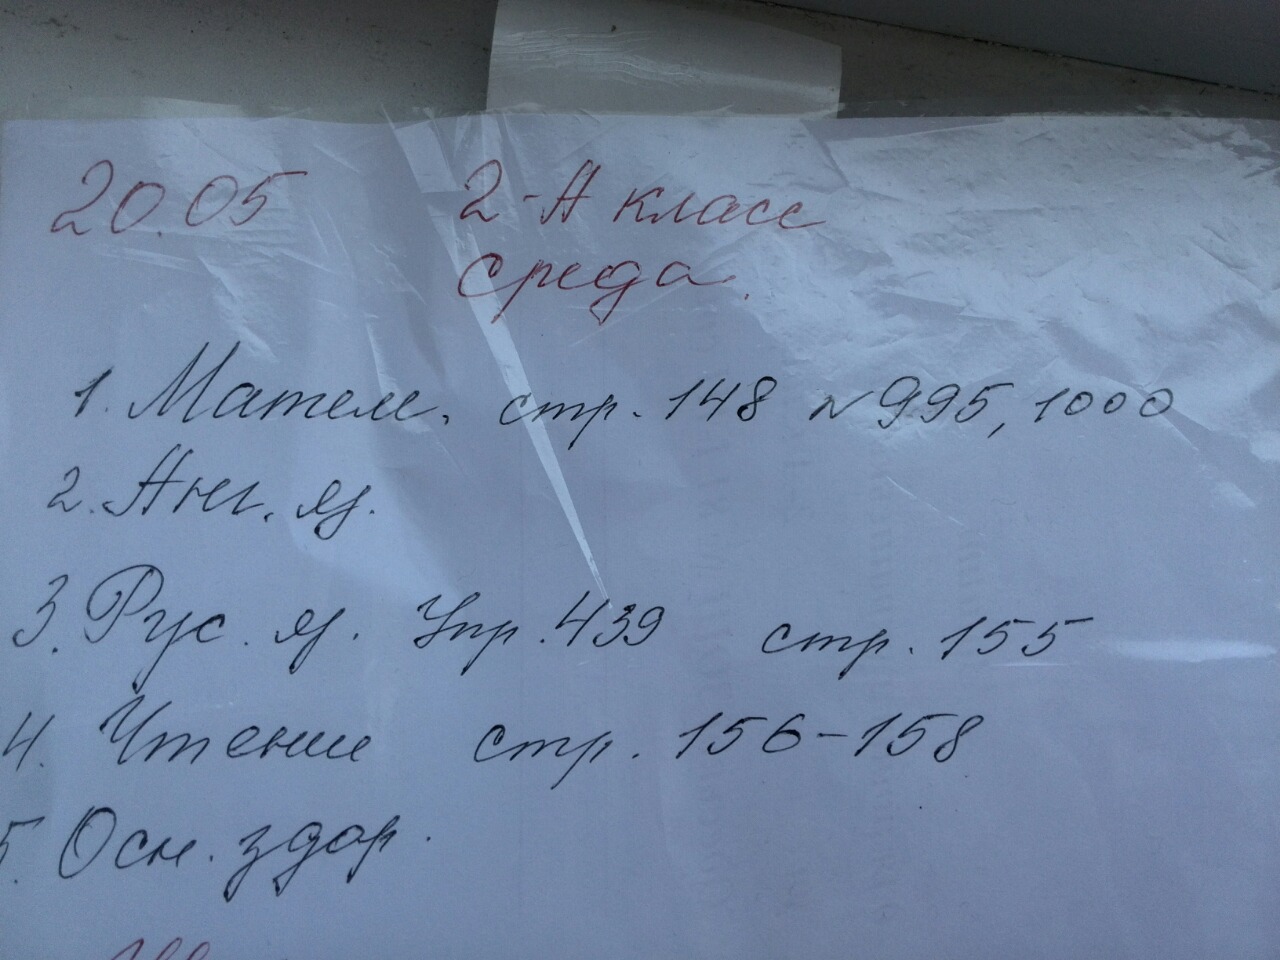 20.05 2-А класс
среда.
1. Матем. стр. 148 №995, 1000
2. Анг. яз.
3. Рус. яз. Упр. 439 стр. 155
4. Чтение стр. 156-158
5. Осн. здор.